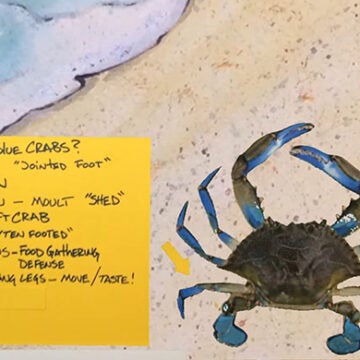 BLUE CRABS?
"JOINTED FOOT"
- MOULT "SHED"
CRAB
TEN FOOTED"
- FOOD GATHERING
DEFENSE
LEGS - MOVE/TASTE!